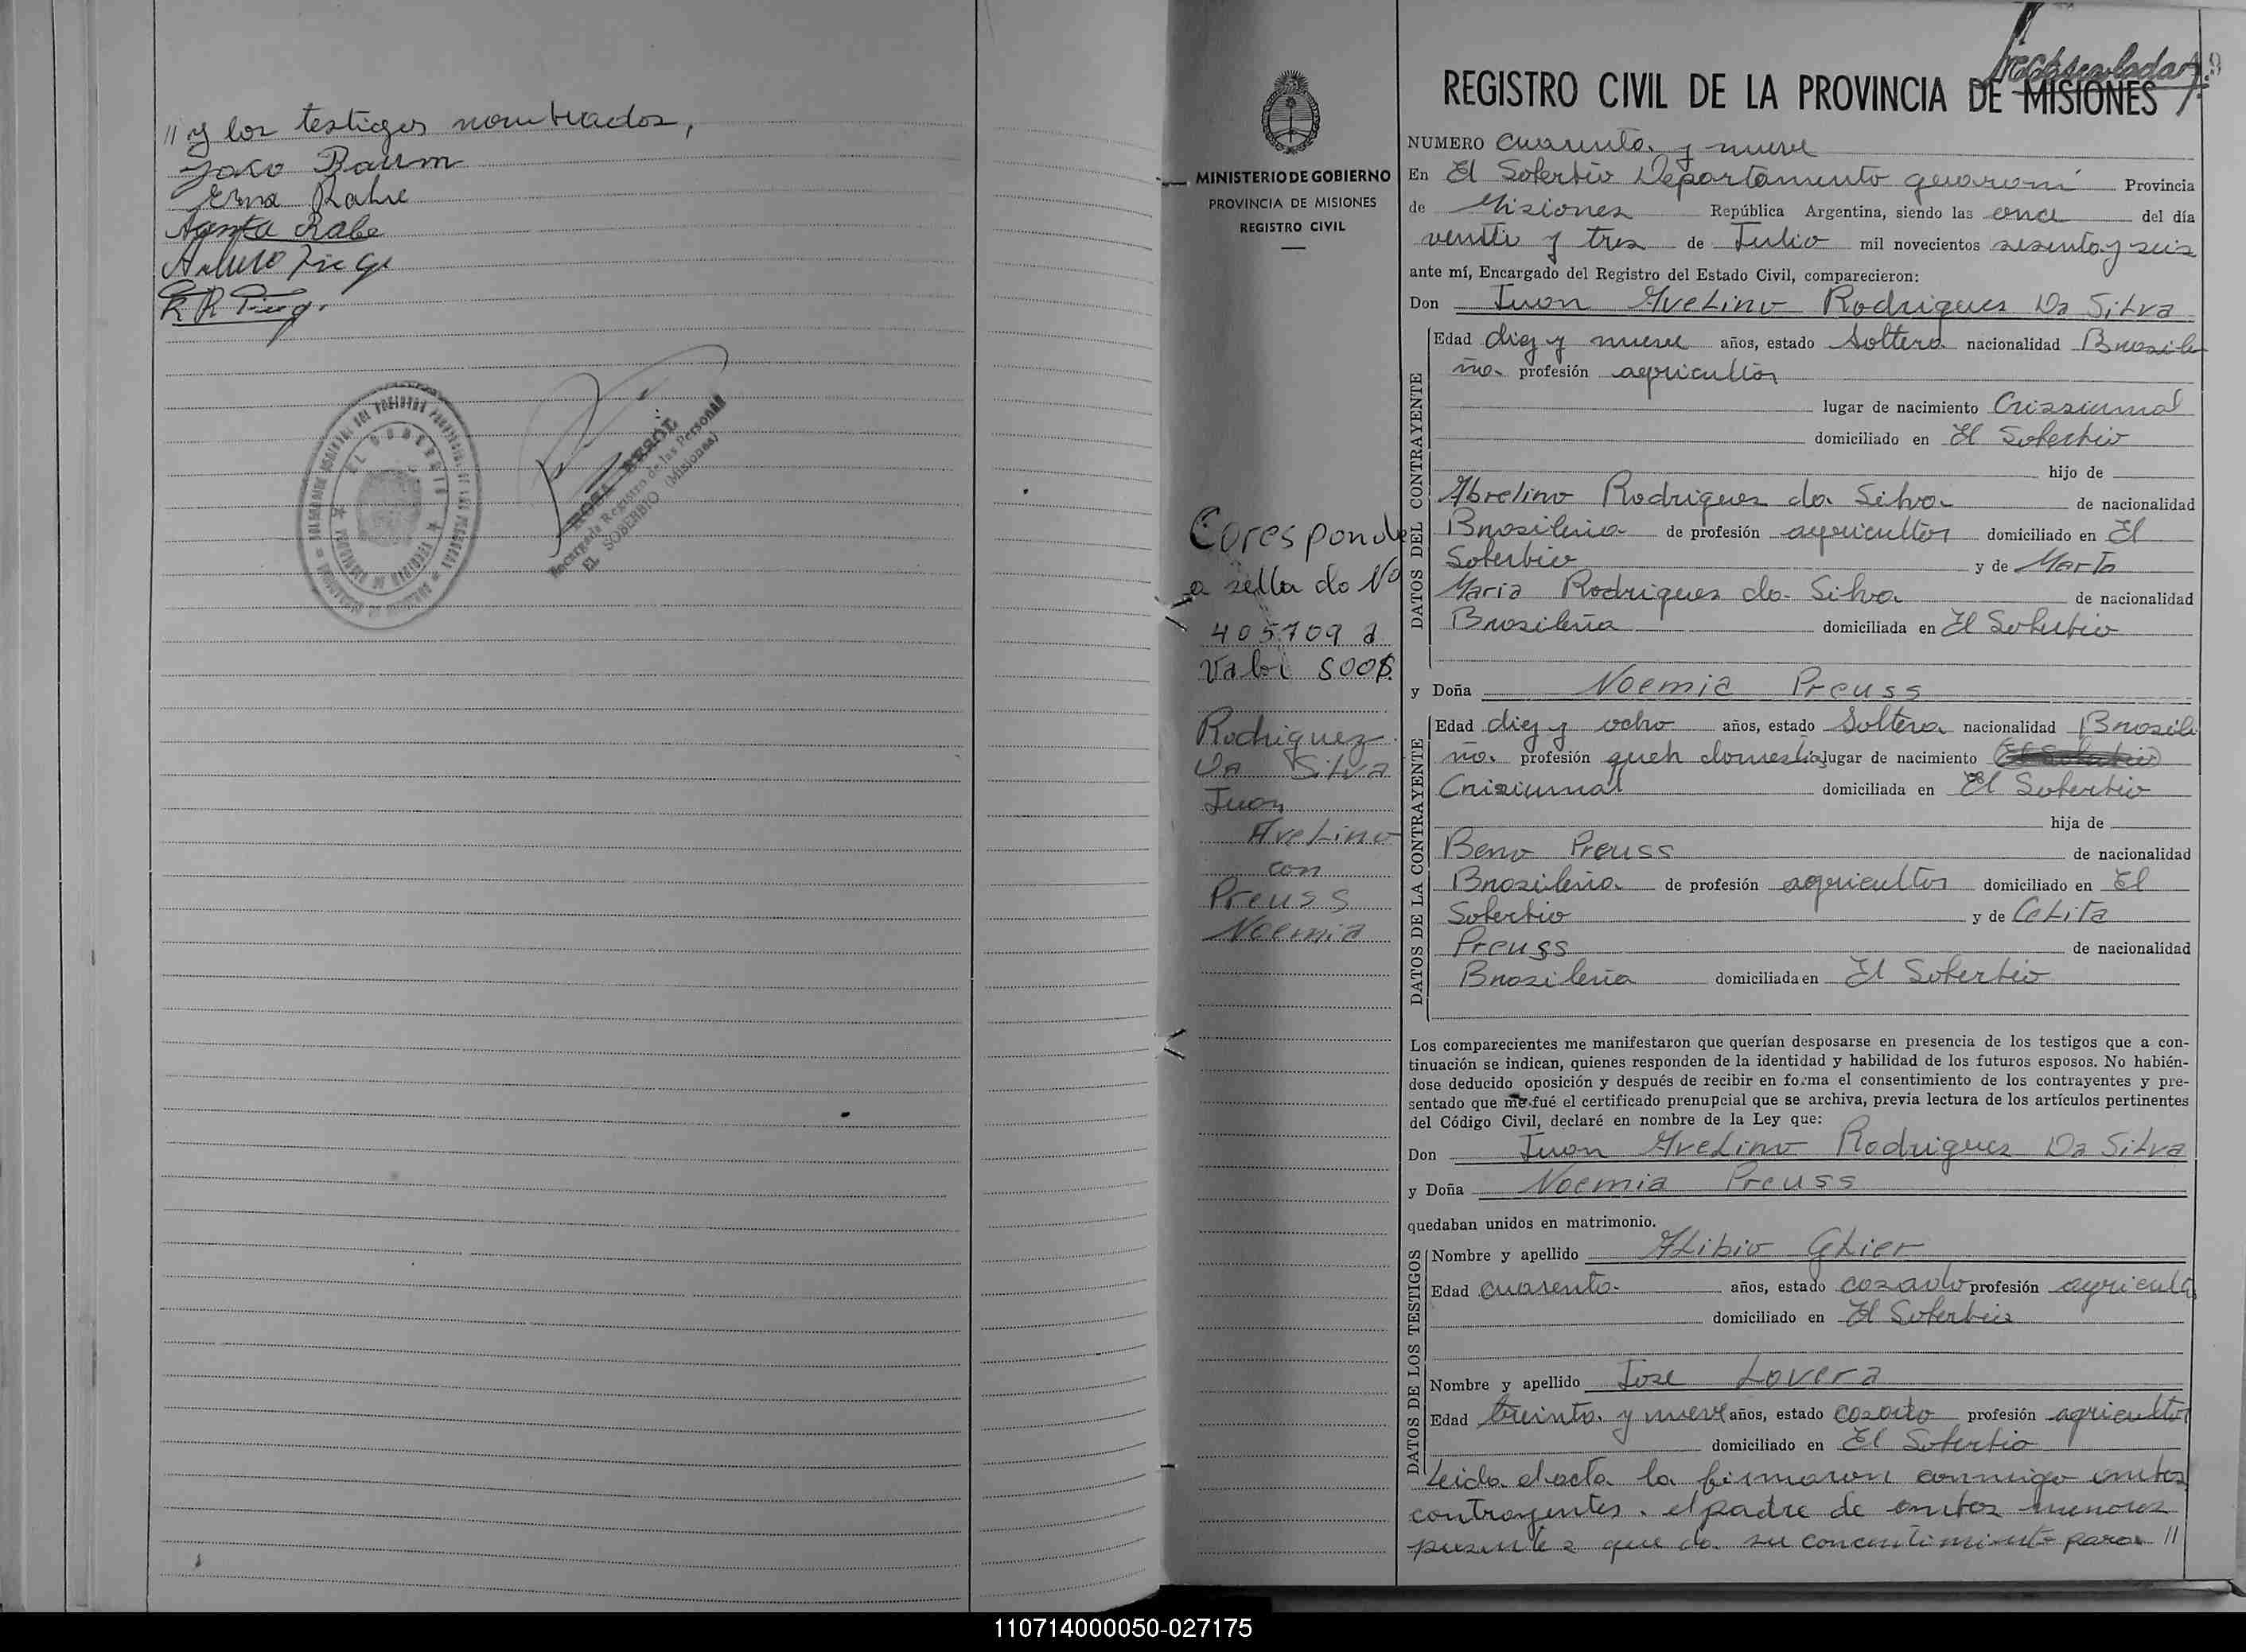 // y los testigos nombrados,
Jaco Baum
Erna Rabe
Rabe
Arturo
EL SOBERBIO
ROSA
Encargada Registro de las Personas
EL SOBERBIO (Misiones)
REGISTRO CIVIL DE LA PROVINCIA DE MISIONES
MINISTERIO DE GOBIERNO
PROVINCIA DE MISIONES
REGISTRO CIVIL
NUMERO cuarenta y nueve
En El Soberbio Departamento guarani Provincia
de Misiones República Argentina, siendo las once del día
veinti y tres de Julio mil novecientos sesenta y seis
ante mí, Encargado del Registro del Estado Civil, comparecieron:
Don Juan Avelino Rodrigues Da Silva
DATOS DEL CONTRAYENTE
Edad diez y nueve años, estado Soltero nacionalidad Brasile
ña profesión agricultor
lugar de nacimiento Crissiumal
domiciliado en El Soberbio
hijo de
Abvelino Rodrigues da Silva de nacionalidad
Brasileña de profesión agricultor domiciliado en El
Soberbio y de Marta
Maria Rodrigues da Silva de nacionalidad
Brasileña domiciliada en El Soberbio
Coresponde
a sella do Nº
405709 d
Valor 500$
Rodriguez
Da Silva
Juan
Avelino
con
Preuss
Noemia
y Doña Noemia Preuss
DATOS DE LA CONTRAYENTE
Edad diez y ocho años, estado Soltera nacionalidad Brasile
ña profesión queh domestic lugar de nacimiento
Crisiumal domiciliada en El Soberbio
hija de
Beno Preuss de nacionalidad
Brasileña de profesión agricultor domiciliado en El
Soberbio y de Celita
Preuss de nacionalidad
Brasileña domiciliada en El Soberbio
Los comparecientes me manifestaron que querían desposarse en presencia de los testigos que a con-
tinuación se indican, quienes responden de la identidad y habilidad de los futuros esposos. No habién-
dose deducido oposición y después de recibir en forma el consentimiento de los contrayentes y pre-
sentado que me fué el certificado prenupcial que se archiva, previa lectura de los artículos pertinentes
del Código Civil, declaré en nombre de la Ley que:
Don Juan Avelino Rodrigues Da Silva
y Doña Noemia Preuss
quedaban unidos en matrimonio.
DATOS DE LOS TESTIGOS
Nombre y apellido Alibio Glier
Edad cuarenta años, estado casado profesión agricultor
domiciliado en El Soberbio
Nombre y apellido Jose Lovera
Edad treinta y nueve años, estado casado profesión agricultor
domiciliado en El Soberbio
Leida el acta la firmaron conmigo ambos
contrayentes, el padre de ambos menores
presentes que da su concentimiento para //
110714000050-027175